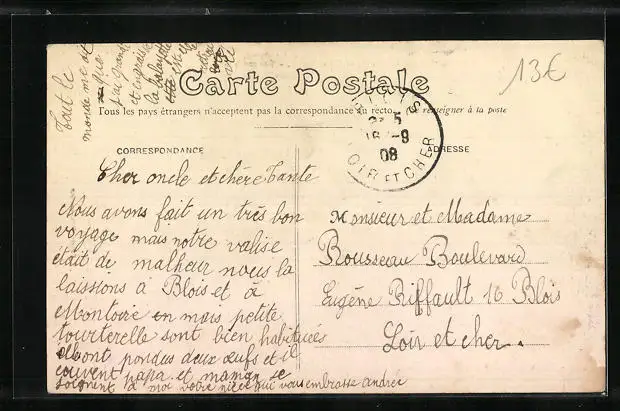 Tout le
monde me dit
que
j'ai grandi
et engraissé
la
est
Carte Postale
13€
Tous les pays étrangers n'acceptent pas la correspondance au recto. (Se renseigner à la poste
5
9
08
LOIR ET CHER
CORRESPONDANCE
ADRESSE
Cher oncle et chère Tante
Nous avons fait un très bon
voyage mais notre valise
était de malheur nous la
laissions à Blois et à
Montoire en mais petite
tourterelle sont bien habituées
elle ont pondus deux œufs et il
couvent papa et maman se
joignent à moi votre nièce qui vous embrasse andrée
Monsieur et Madame
Rousseau Boulevard
Eugène Riffault 16 Blois
Loir et cher.